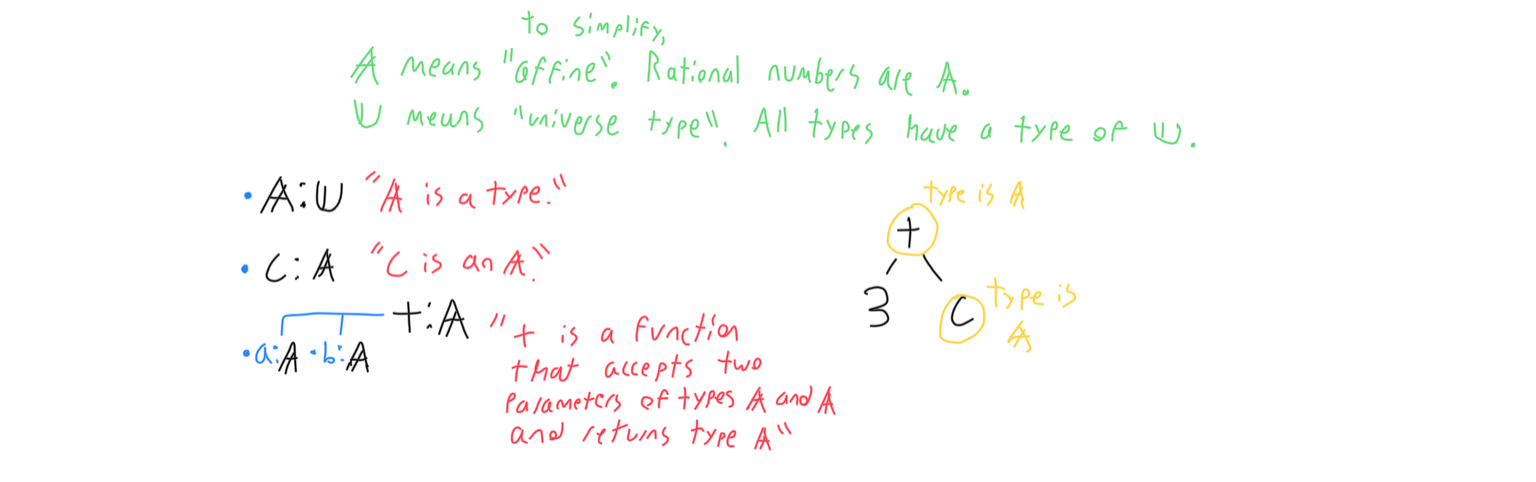 to simplify,
𝔸 means "affine". Rational numbers are 𝔸.
𝕌 means "universe type". All types have a type of 𝕌.
• 𝔸:𝕌 "𝔸 is a type."
• C: 𝔸 "C is an 𝔸."
+:𝔸 "+ is a function
that accepts two
parameters of types 𝔸 and 𝔸
and returns type 𝔸"
• a:𝔸 • b:𝔸
type is 𝔸
+
3 C type is
𝔸